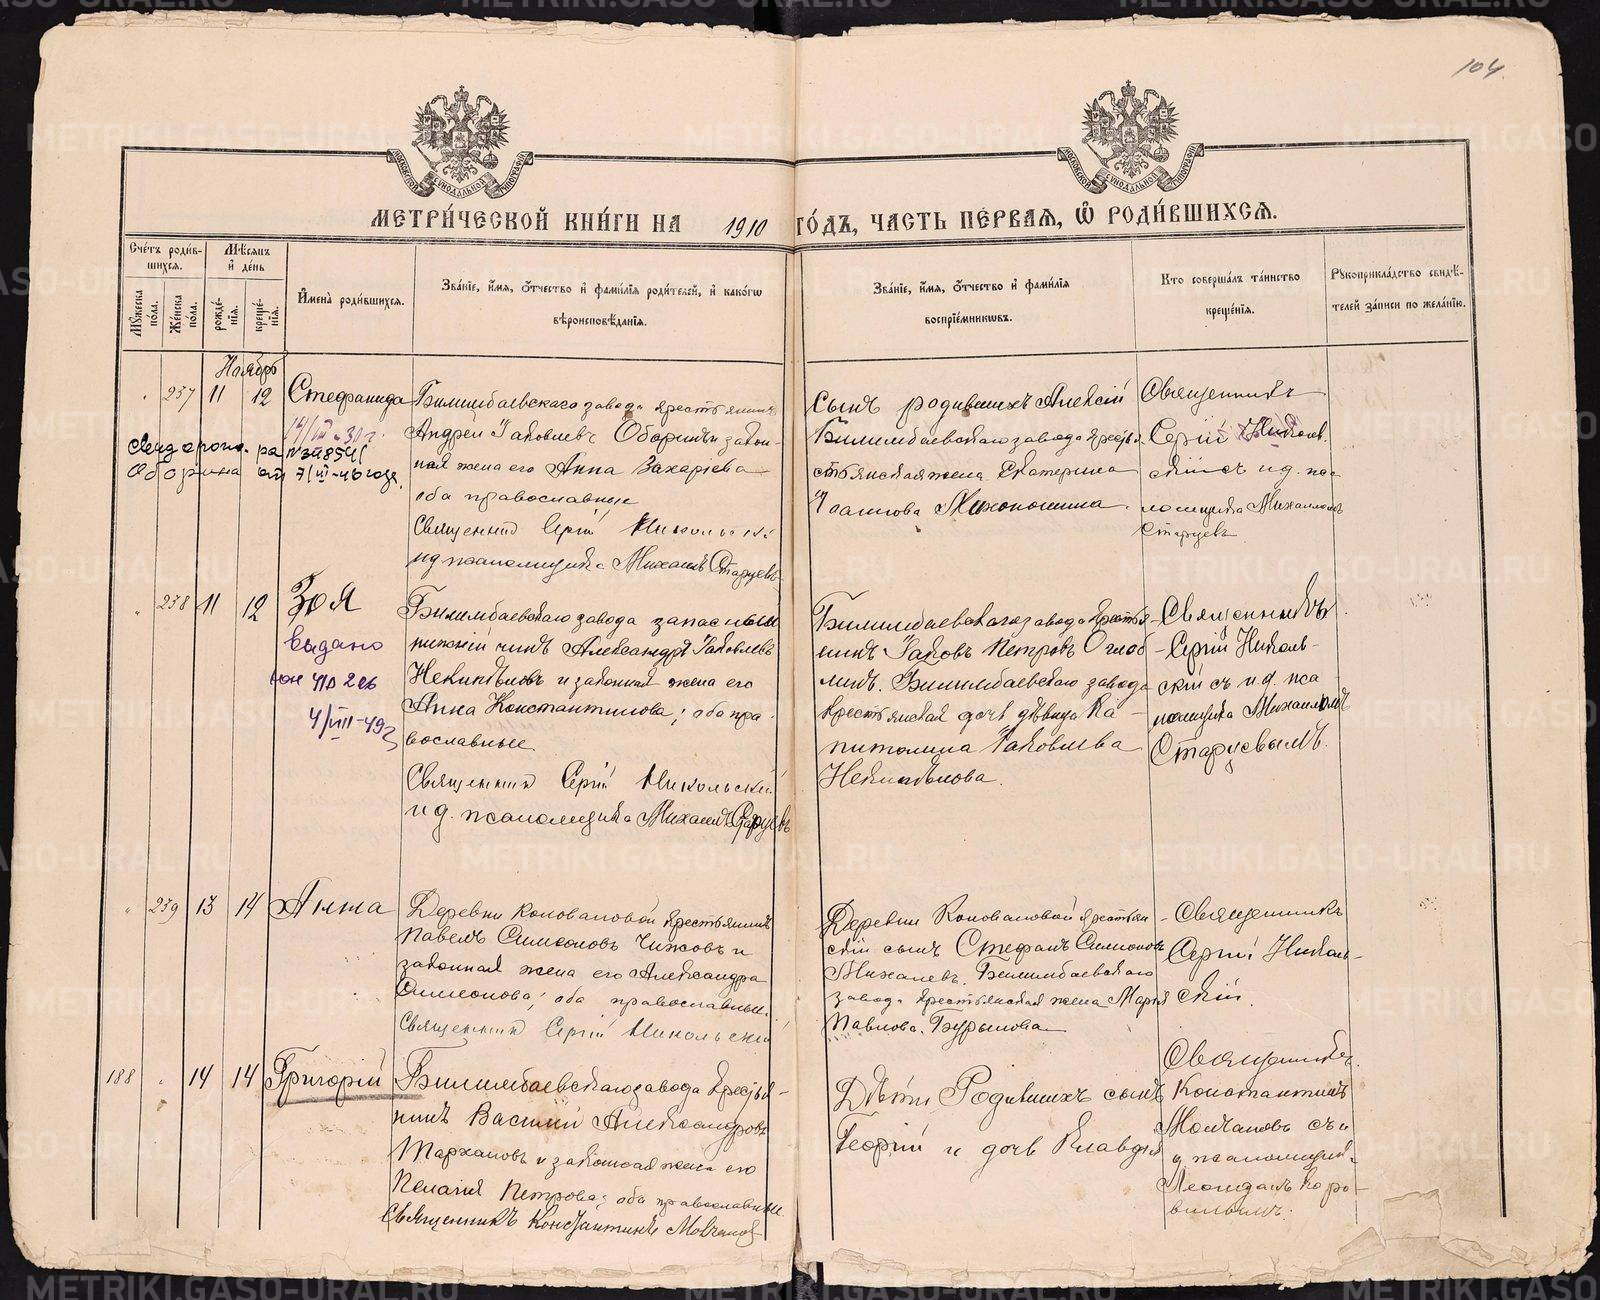 104.
МОСКОВСКОЙ СѴНОДАЛЬНОЙ ТИПОГРАФІИ
МОСКОВСКОЙ СѴНОДАЛЬНОЙ ТИПОГРАФІИ
МЕТРИ́ЧЕСКОЙ КНИ́ГИ НА 1910 ГО́ДЪ, ЧАСТЬ ПЕ́РВАЯ, Ѿ РОДИ́ВШИХСЯ.
Сче́тъ роди́в-
шихся.
Мѣ́сяцъ
и҆ де́нь
Мꙋ́жеска по́ла.
Же́нска по́ла.
рожде́-
нїѧ.
креще́-
нїѧ.
И҆мена̀ роди́вшихся.
Зва́нїе, и҆́мя, ѻ҆́тчество и҆ фами́лїя роди́телей, и҆ како́гѡ
вѣроисповѣ́данїя.
Зва́нїе, и҆́мя, ѻ҆́тчество и҆ фами́лїя
воспрїе́мникѡвъ.
Кто соверша́лъ та́инство
креще́нїя.
Рꙋкоприкла́дство свидѣ́-
телей за́писи по жела́нїю.
Ноябрь
237 11 12 Стефанида
Билимбаевскаго завода крестьянинъ
Андрей Іаковлевъ Оборинъ и закон-
ная жена его Анна Захаріева
оба православные
Священникъ Сергій Никольскій
и д псаломщика Михаилъ Старцевъ
Оборина
7/III-46 года.
сынъ родившихъ Алексій
Билимбаевскаго завода крестья
стьянская жена Екатерина
Іоаннова Махоношина.
Священникъ
Сергій Николь-
скій съ и д. пса-
ломщика Михаиломъ
Старцевъ
238 11 12 Зоя
выдано
4/VIII-49 г
Билимбаевскаго завода запасный
нижній чинъ Александръ Іаковлевъ
Некипѣловъ и законная жена его
Анна Константинова; оба пра-
вославные.
Священникъ Сергій Никольскій
и д. псаломщика Михаилъ Старцевъ
Билимбаевскаго завода крестья-
нинъ Іаковъ Петровъ Оглоб-
линъ. Билимбаевскаго завода
крестьянская дочь дѣвица Ка-
питолина Іаковлева
Некипѣлова.
Священникъ
Сергій Николь-
скій съ и. д. пса
ломщика Михаиломъ
Старцевымъ.
239 13 14 Анна
Деревни Коноваловой крестьянинъ
Павелъ Симеоновъ Чижовъ и
законная жена его Александра
Симеонова; оба православные.
Священникъ Сергій Никольскій
Деревни Коноваловой крестьян-
скій сынъ Стефанъ Симеоновъ
Михалевъ. Билимбаевскаго
завода крестьянская жена Марія
Павлова Бурылова
Священникъ
Сергій Николь-
скій.
188 14 14 Григорій
Билимбаевскаго завода крестья-
нинъ Василій Александровъ
Тархановъ и законная жена его
Пелагія Петрова; оба православные
Священникъ Константинъ Молчановъ
Дѣти Родившихъ сынъ
Георгій и дочь Клавдія
Священникъ
Константинъ
Молчановъ съ и
д псаломщика
Леонидомъ Коро-